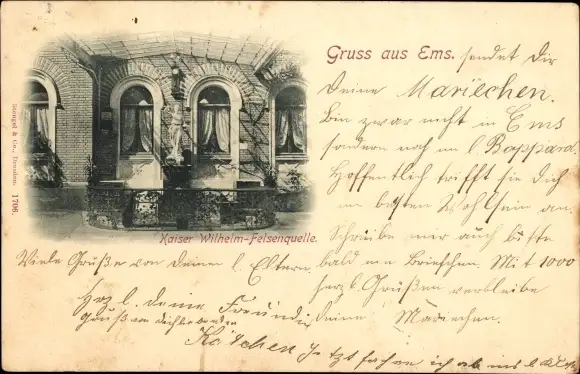 Gruss aus Ems. sendet Dir
Deine Mariechen.
Bin zwar nicht in Ems
sondern noch im l. Boppard.
Hoffentlich trifft sie Dich
im besten Wohlsein an.
Schreibe mir auch bitte
bald ein Briefchen. Mit 1000
herzl. Grüßen verbleibe
Deine Mariechen.
Stengel & Co., Dresden. 1706.
Kaiser Wilhelm-Felsenquelle.
Viele Grüße von Deinen l. Eltern
Herzl. deine Freundin
Gruß von
Käthchen
Jetzt fahre ich ab ins l.